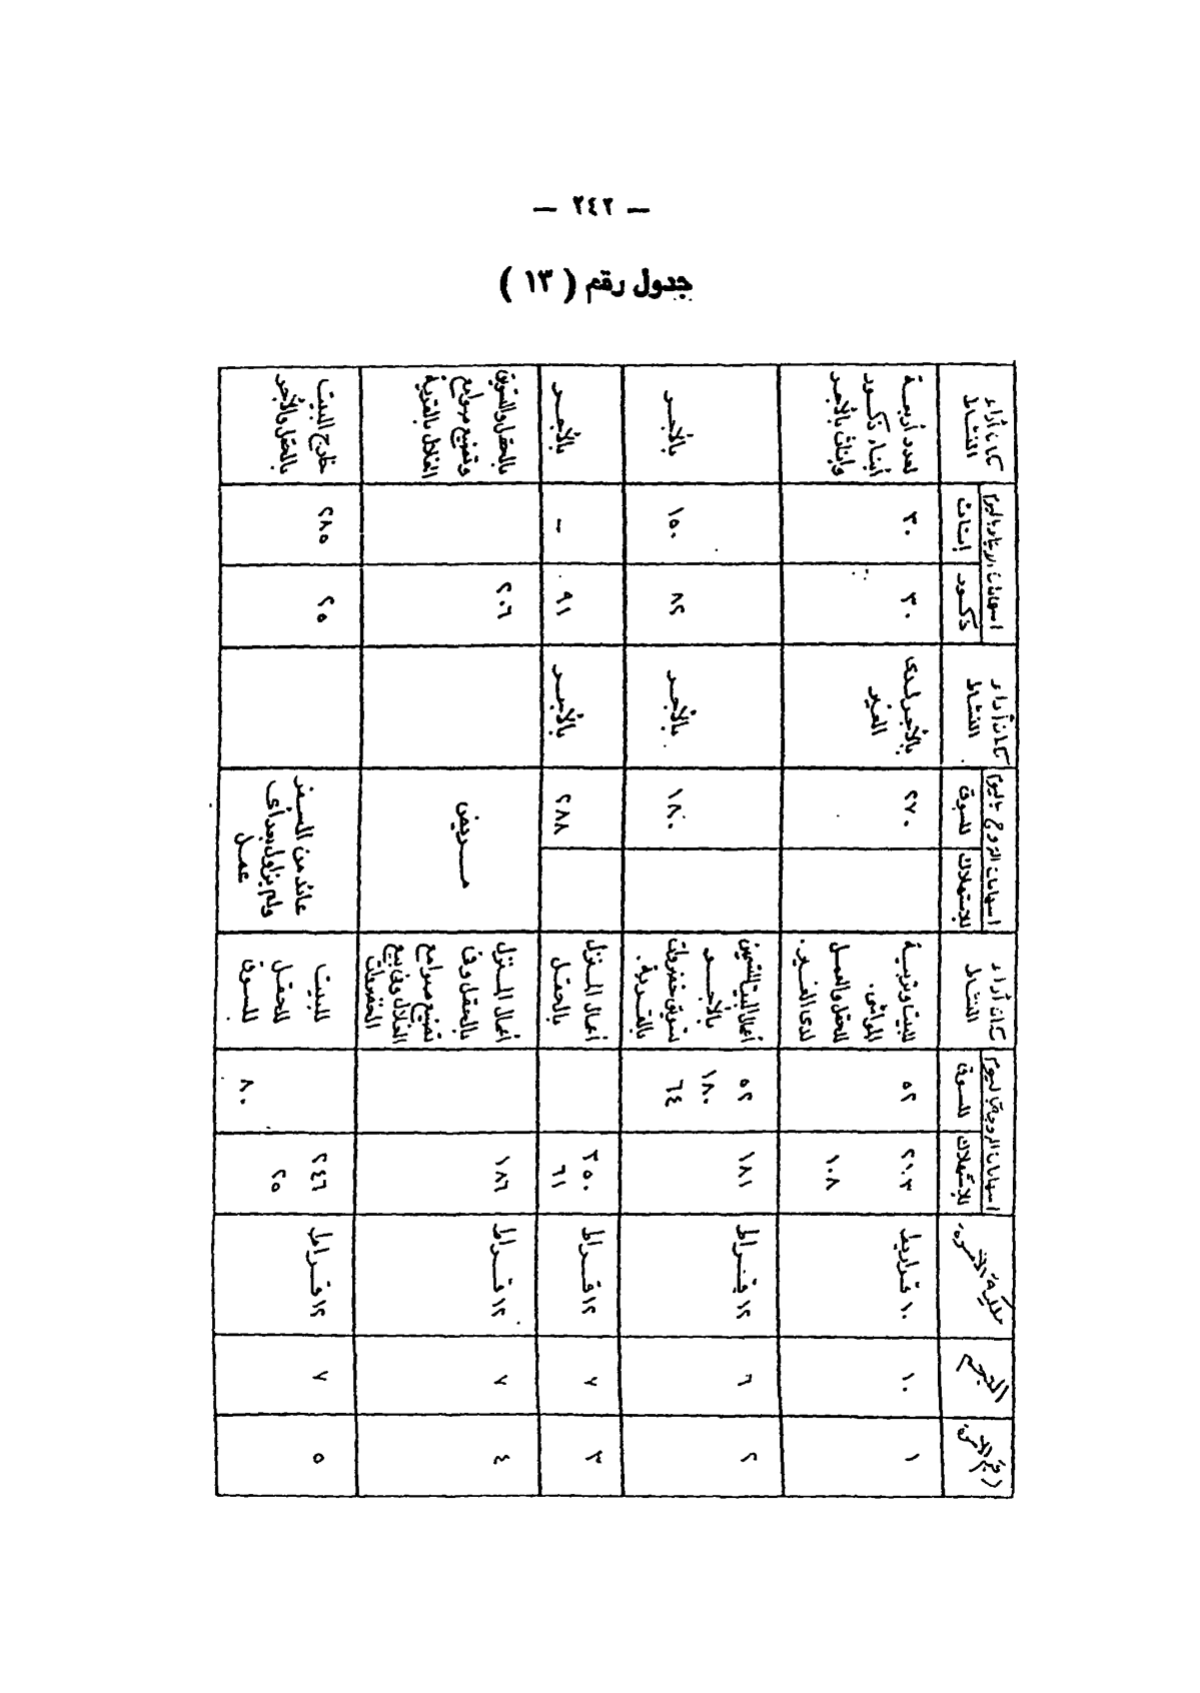 — ٢٤٢ —
جدول رقم ( ١٣ )
رقم الأسرة
الحجم
ملكية الأسرة
اسهامات الزوجة باليوم
للاستهلاك
للسوق
مكان أداء
النشاط
اسهامات الزوج باليوم
للاستهلاك
للسوق
مكان أداء
النشاط
اسهامات الأولاد باليوم
ذكور
إناث
مكان أداء
النشاط
١
١٠
١٠ قراريط
٢١٣
١٠٨
٥٢
للبيت وتربية
المواشى.
للحقل والعمل
لدى الغير.
٢٧٠
بالأجر لدى
الغير
٣٠
٣٠
لعدد أربعة
أبناء ذكور
وإناث بالأجر
٢
٦
١٢ قيراط
١٨١
٥٢
١٨٠
٦٤
أعمال البيت
بالأجر
تسويق خضروات
بالقرية.
١٨٠
بالأجر
٨٢
١٥٠
بالأجر
٣
٧
١٢ قراط
٣٥٠
٦١
أعمال المنزل
بالحقل
٢٨٨
بالأجر
٩١
-
بالأجر
٤
٧
١٢ قراط
١٨٦
أعمال المنزل
بالحقل وفى
تصنيع صوامع
الغلال وفى بيع
الخضروات
مريض
٢٠٦
بالحقل والتسويق
وتصنيع صوامع
الغلال بالقرية
٥
٧
١٢ قراط
٢٤٦
٢٥
٨٠
للبيت
للحقل
للسوق
عائد من السفر
ولم يزاول بعد أى
عمل
٢٥
٢٨٥
خارج البيت
بالحقل والأجر